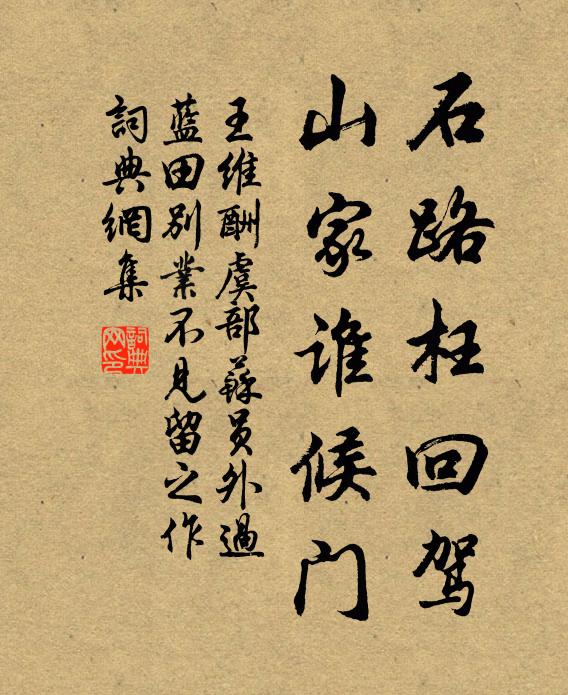 石路枉回驾
山家谁候门
王维酬虞部蘇员外過
蓝田别業不見留之作
詞典網集
詞典
网印